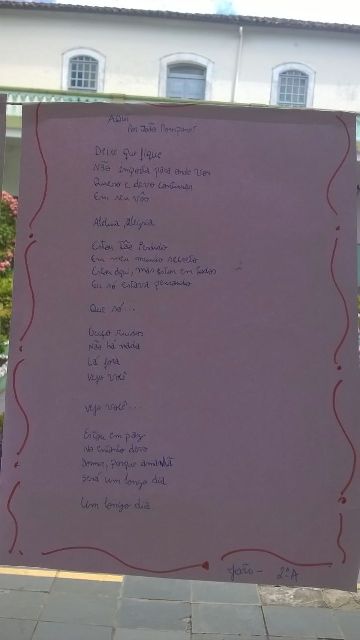 Aqui
Por João
Deixe que fique
Não importa para onde vou
Quero e devo continuar
Em seu vôo
Alegria
Estou tão perdido
Em meu mundo secreto
Estou aqui, mas estou em todos
Eu só estava pensando
Que só...
Ouço ruídos
Não há nada
Lá fora
Vejo você
Vejo você...
Estou em paz
No entanto devo
Dormir, porque amanhã
Será um longo dia
Um longo dia
João - 2ºA